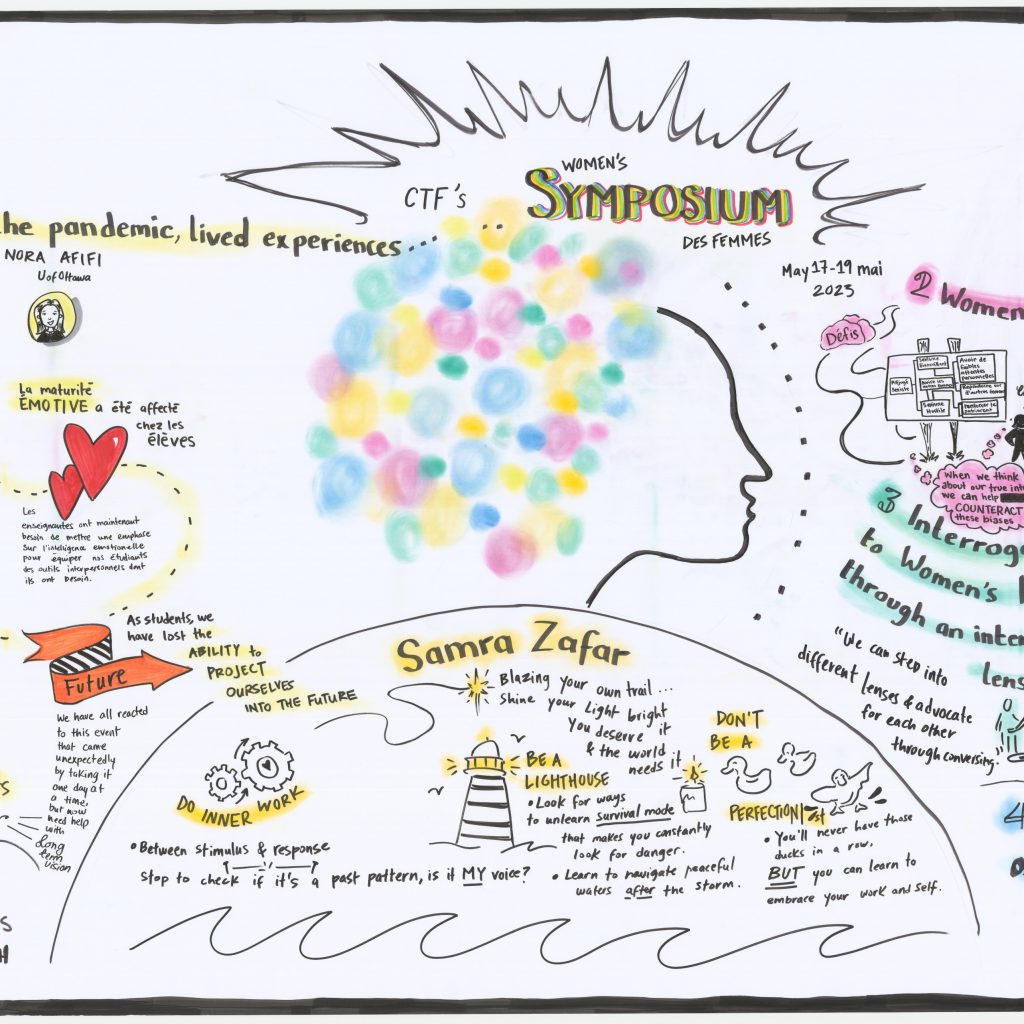 CTF's
WOMEN'S
SYMPOSIUM
DES FEMMES
May 17-19 mai
2023
the pandemic, lived experiences...
NORA AFIFI
U of Ottawa
La maturité
ÉMOTIVE a été affecté
chez les
élèves
Les
enseignantes ont maintenant
besoin de mettre une emphase
sur l'intelligence émotionelle
pour équiper nos étudiants
des outils interpersonnels dont
ils ont besoin.
As students, we
have lost the
ABILITY to
PROJECT
OURSELVES
INTO THE FUTURE
Future
We have all reacted
to this event
that came
unexpectedly
by taking it
one day at
a time,
but now
need help
with
Long
term
vision
Samra Zafar
Blazing your own trail...
Shine your Light bright
you deserve it
& the world
needs it
DO INNER WORK
• Between stimulus & response
stop to check if it's a past pattern, is it MY voice?
BE A
LIGHTHOUSE
• Look for ways
to unlearn survival mode
that makes you constantly
look for danger.
• Learn to navigate peaceful
waters after the storm.
DON'T
BE A
PERFECTIONIst
• You'll never have those
ducks in a row,
BUT you can learn to
embrace your work and self.
2 Women
Défis
Préjugé
sexiste
Sexisme
bienveillant
Avoir de
faibles
attentes
personnelles
Sexisme
Hostile
When we think
about our true int
we can help
COUNTERACT
these biases
3 Interrog
to Women's
through an inter
Lens
"We can step into
different lenses & advocate
for each other
through conversing."
4